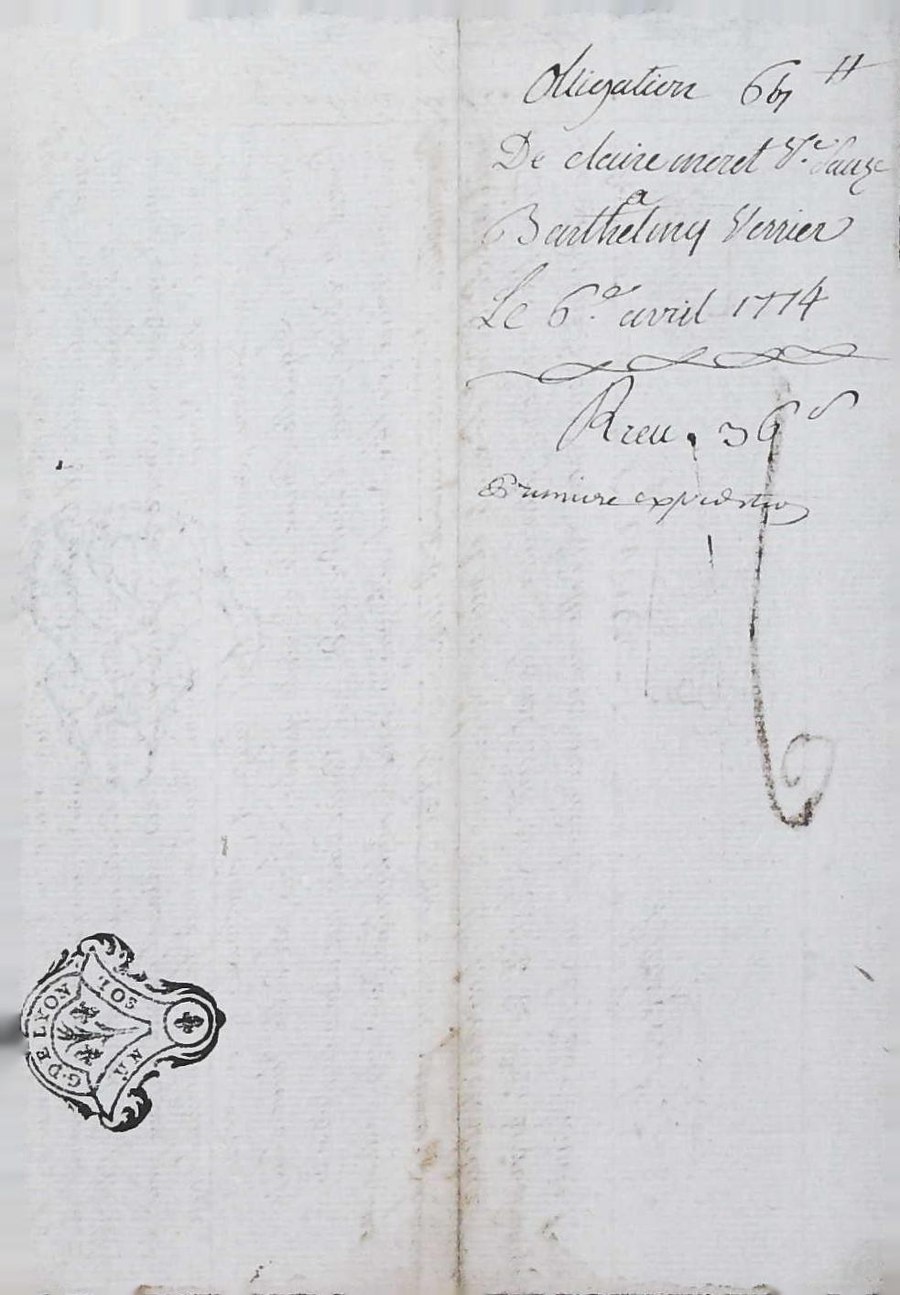 Obligation 66 ₶
De claire moret Ve. Sauze
a
Barthelmy Verrier
Le 6e. avril 1774
Rceu. 36 s
Premiere expedition
G. DE LYON
UN SOL